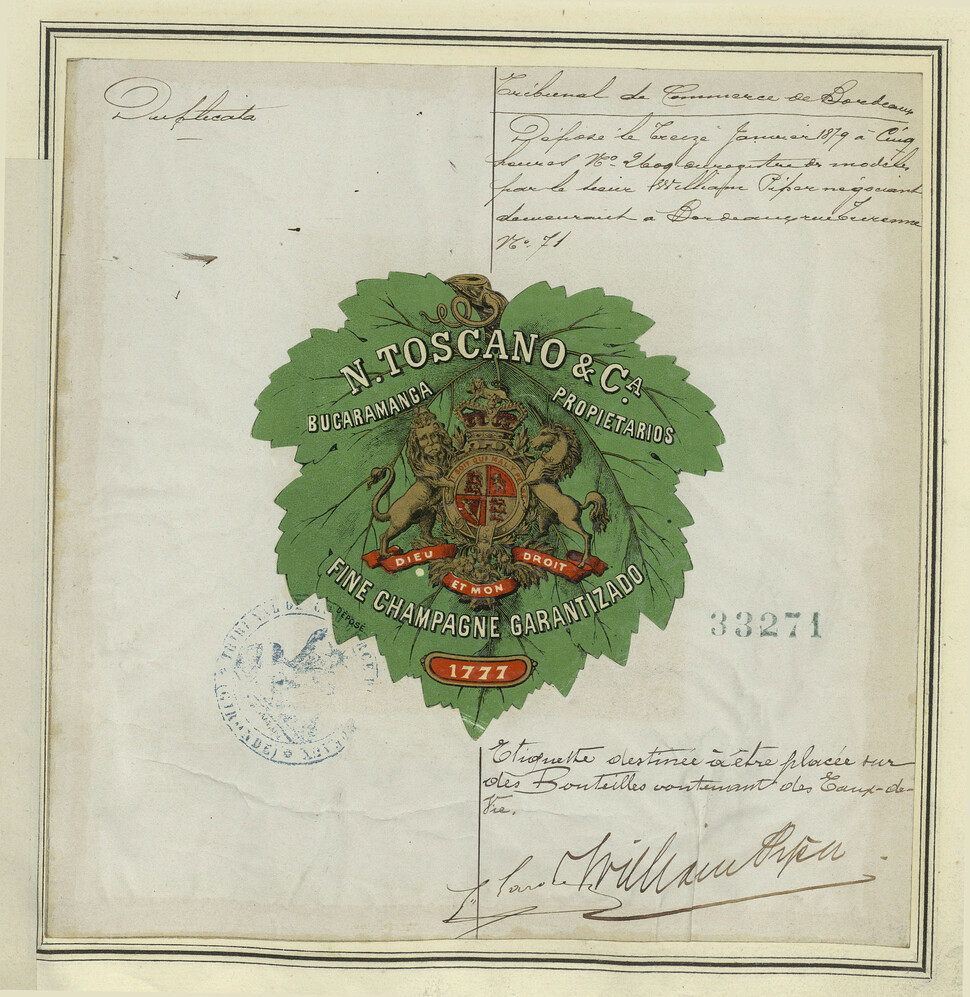 Duplicata
Tribunal de Commerce de Bordeaux
Déposé le treize Janvier 1879 à Cinq
heures No. 2609 du registre de modèles
par le sieur William Piper négociant
demeurant à Bordeaux, rue Turenne
No. 71
N. TOSCANO & CA.
BUCARAMANGA PROPIETARIOS
HONI SOIT QUI MAL Y PENSE
DIEU ET MON DROIT
FINE CHAMPAGNE GARANTIZADO
DÉPOSÉ
1777
33271
TRIBUNAL DE COMMERCE
BORDEAUX
(GIRONDE)
Etiquette destinée à être placée sur
des Bouteilles contenant des Eaux-de-
Vie.
William Piper